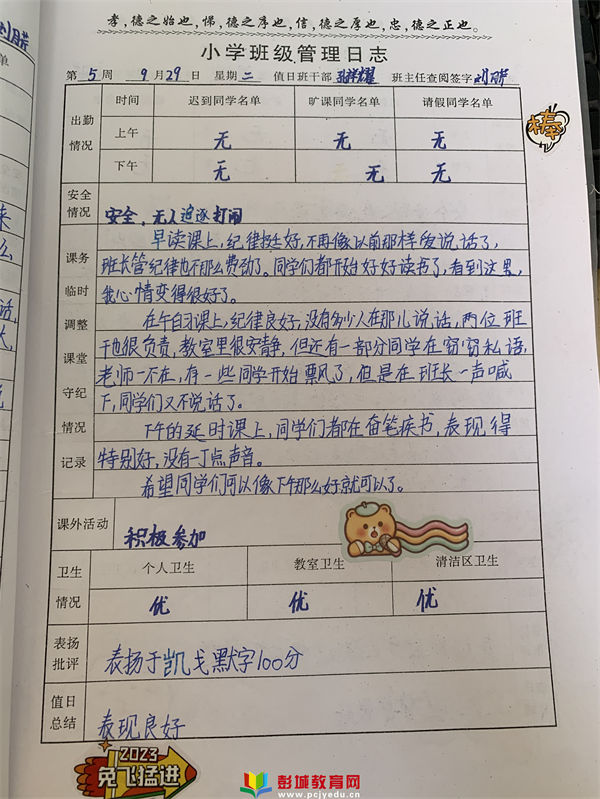 孝,德之始也,悌,德之序也,信,德之厚也,忠,德之正也。
小学班级管理日志
第 5 周 9 月 29 日 星期 二 值日班干部 班主任查阅签字
出勤情况 时间 迟到同学名单 旷课同学名单 请假同学名单
上午 无 无 无
下午 无 无 无
棒
安全情况 安全,无人追逐打闹
课务临时调整课堂守纪情况记录
早读课上,纪律挺好,不再像以前那样爱说话了,
班长管纪律也不那么费劲了。同学们都开始好好读书了,看到这里,
我心情变得很好了。
在午自习课上,纪律良好,没有多少人在那儿说话,两位班
干也很负责,教室里很安静,但还有一部分同学在窃窃私语,
老师一不在,有一些同学开始飘风了,但是在班长一声喊
下,同学们又不说话了。
下午的延时课上,同学们都在奋笔疾书,表现得
特别好,没有一丁点声音。
希望同学们可以像下午那么好就可以了。
课外活动 积极参加
卫生情况 个人卫生 教室卫生 清洁区卫生
优 优 优
表扬批评 表扬于凯戈默字100分
值日总结 表现良好
2023
兔飞猛进
彭城教育网
www.pcjyedu.cn